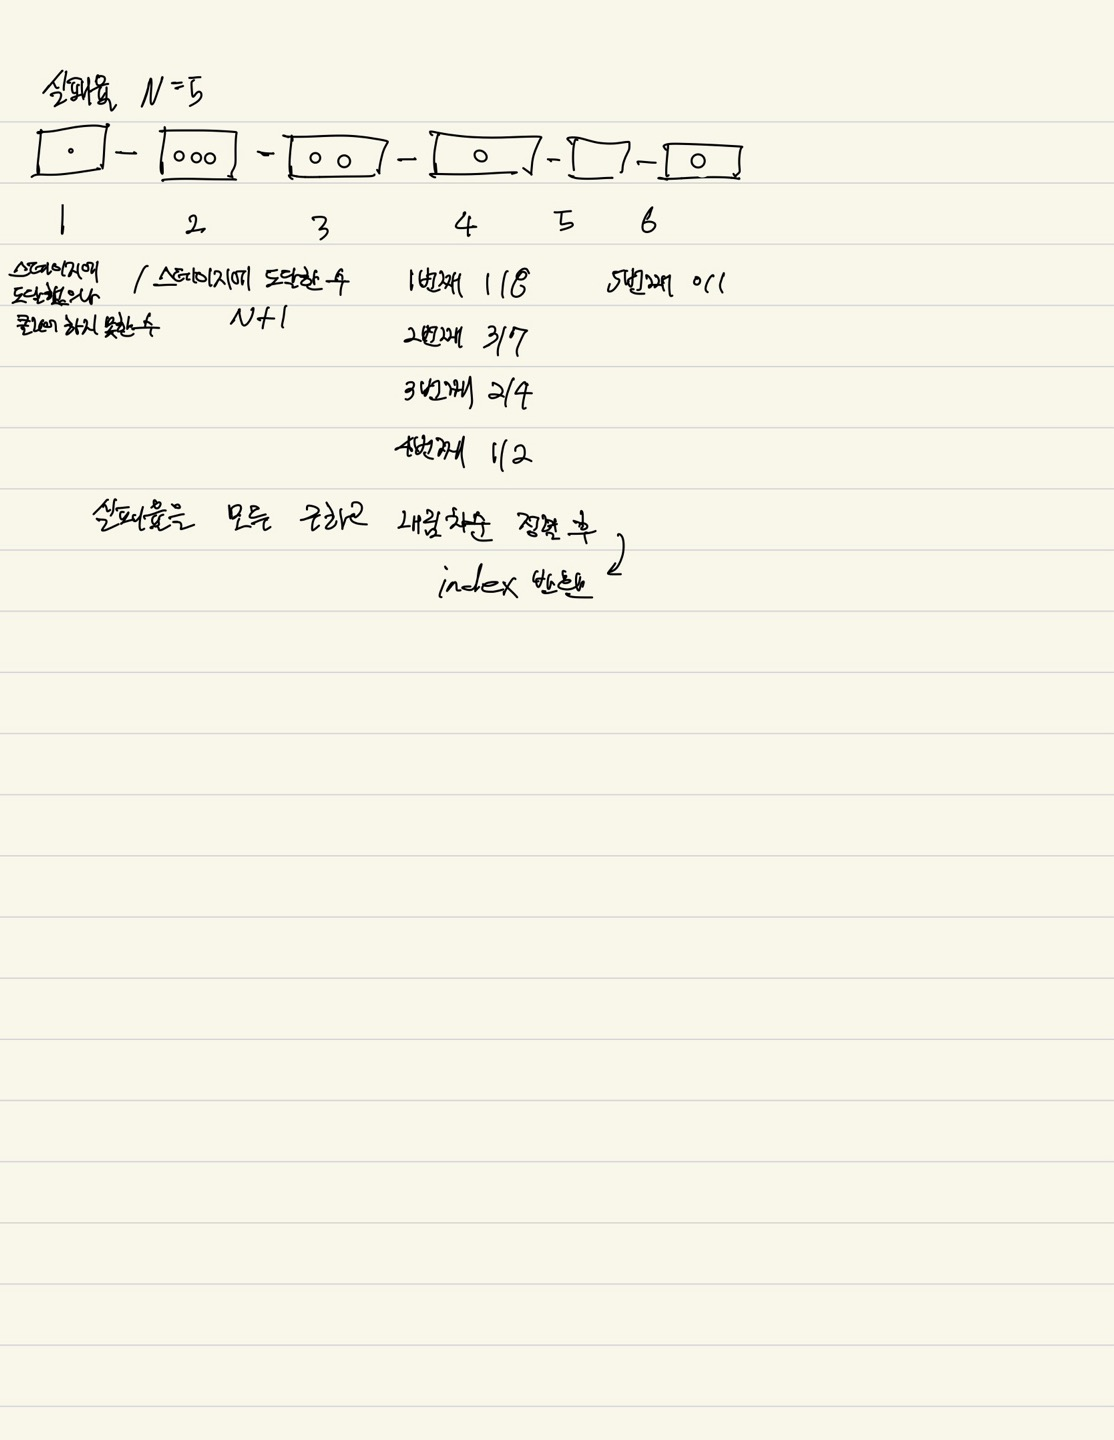 실패율 N=5
1 2 3 4 5 6
스테이지에 / 스테이지에 도달한 수
도달했으나
클리어 하지 못한 수
N+1
1번째 1/8
2번째 3/7
3번째 2/4
4번째 1/2
5번째 0/1
실패율을 모두 구하고 내림차순 정렬 후
index 반환